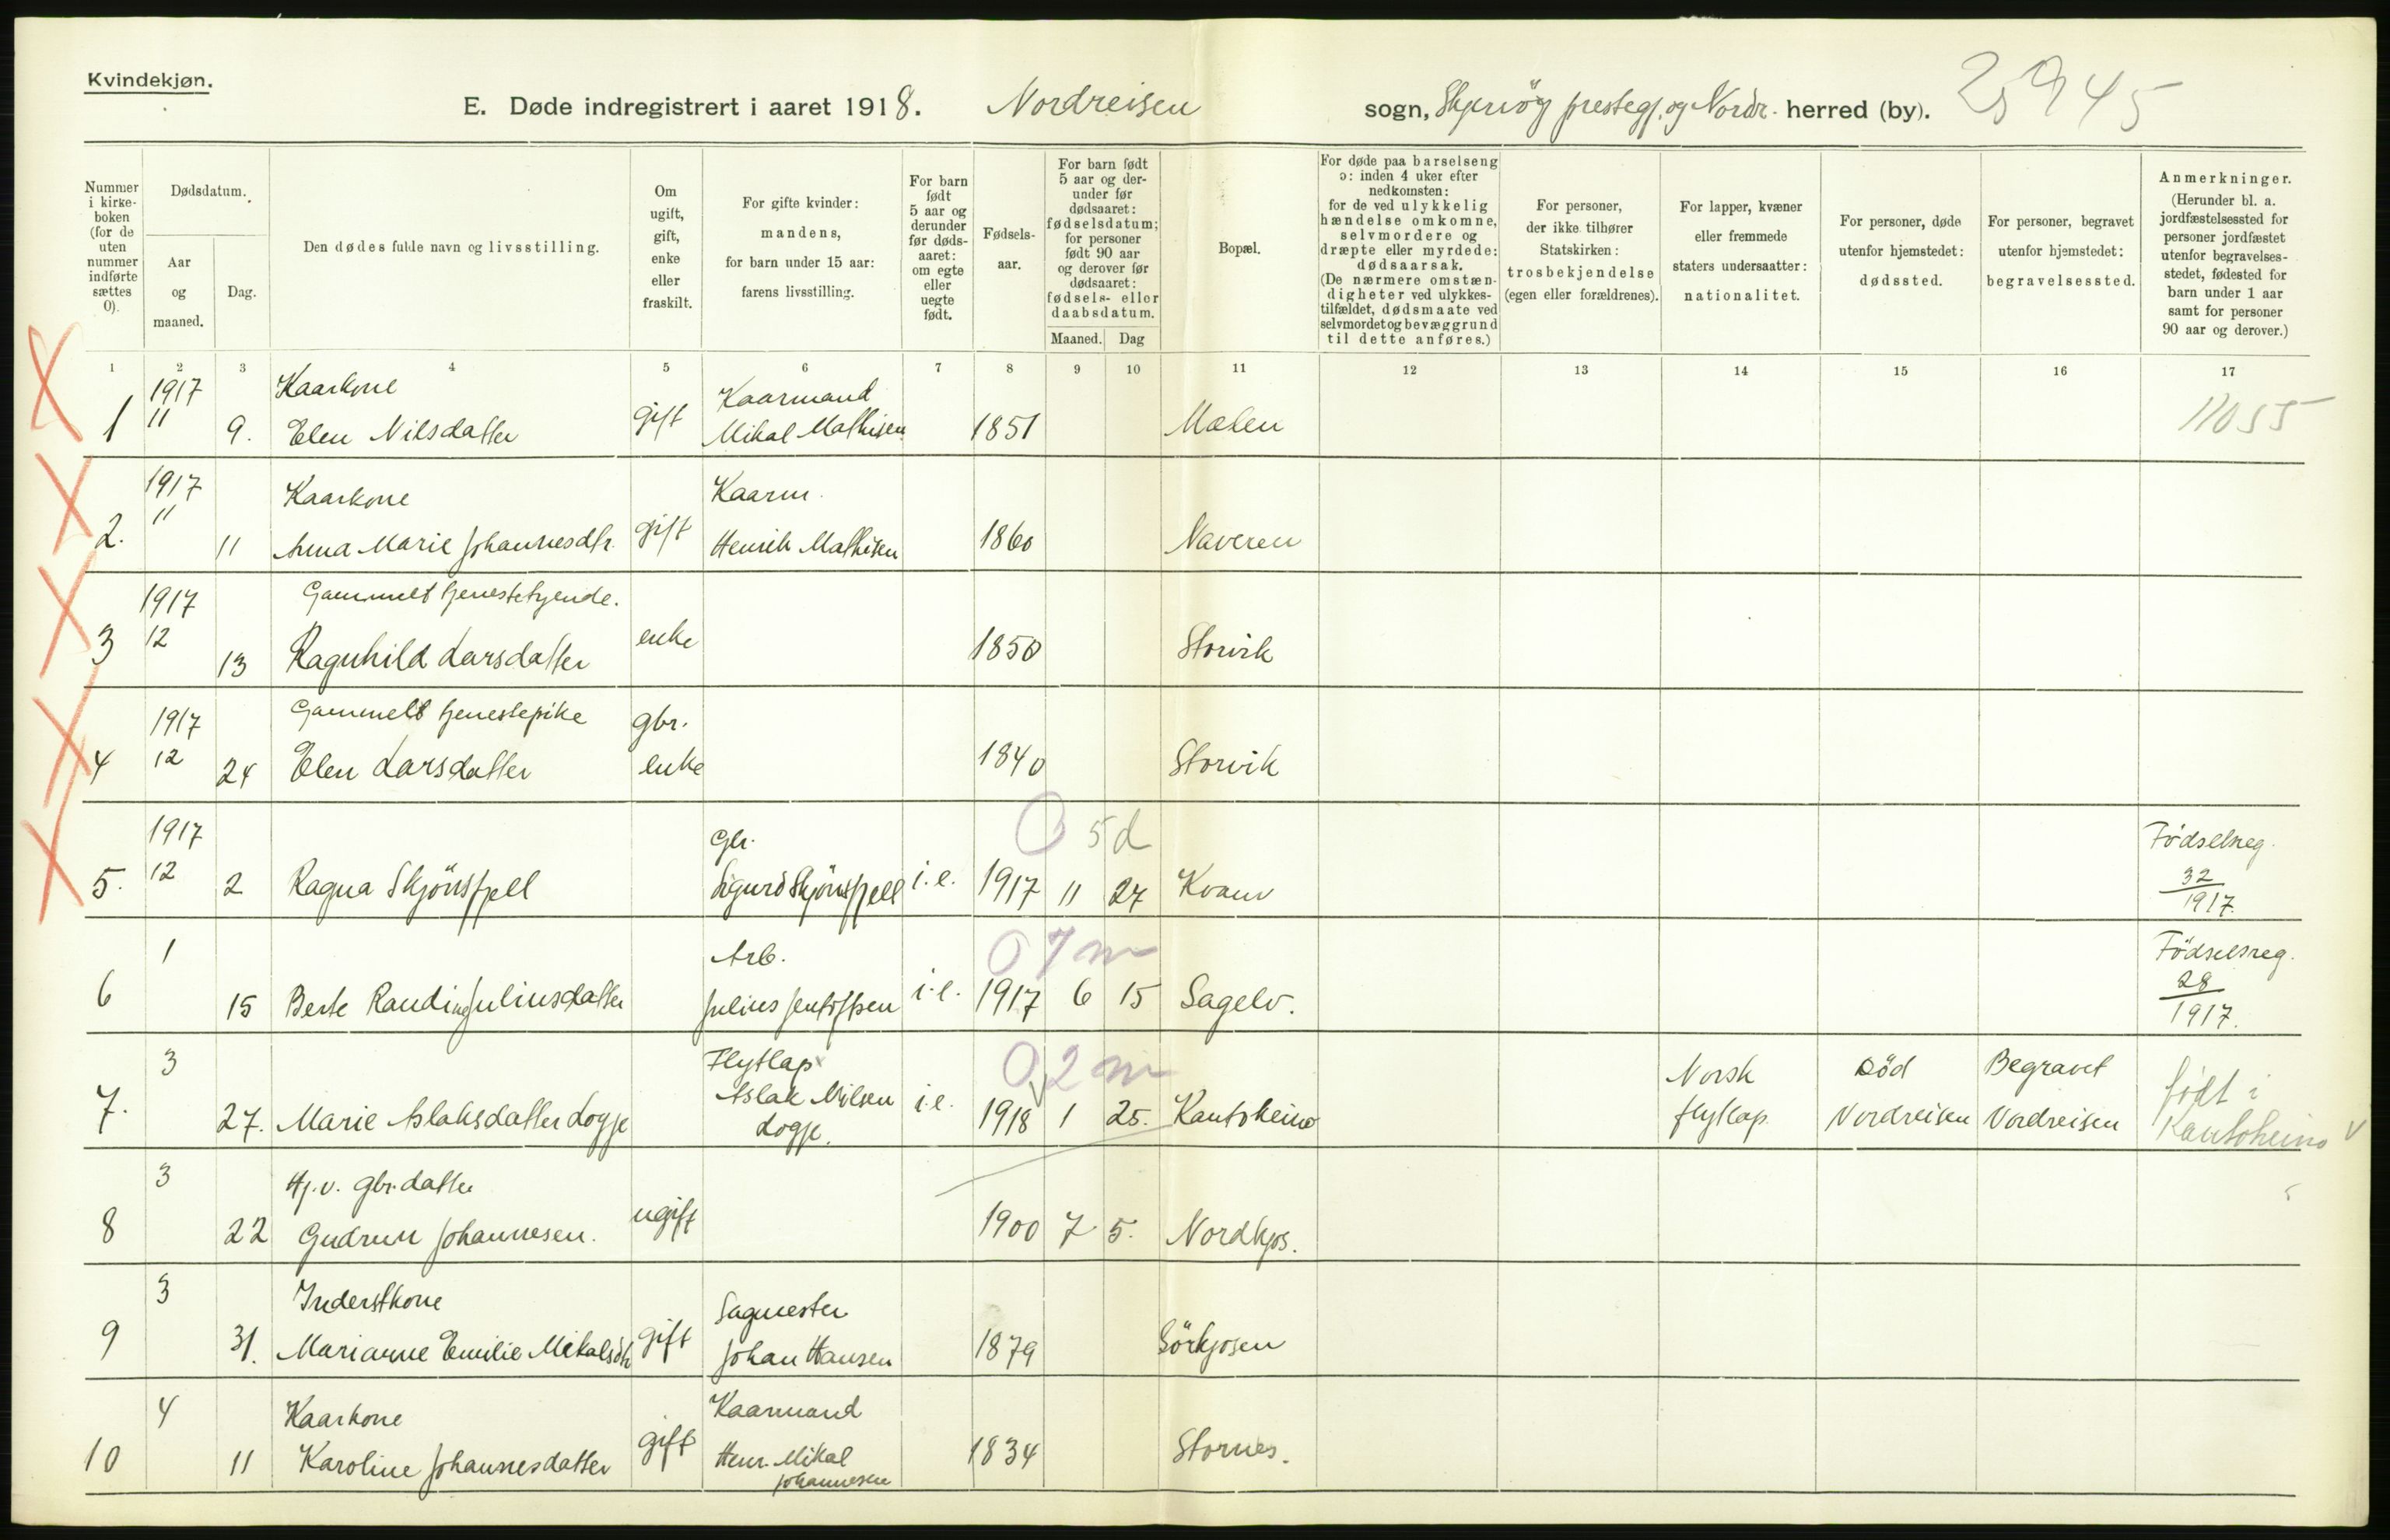 Kvindekjøn.
E. Døde indregistrert i aaret 1918. Nordreisen sogn, Skjervöy prestegj. og Nordr. herred (by). 25945
Nummer i kirke-boken (for de uten nummer indførte sættes 0).
Dødsdatum.
Aar og maaned.
Dag.
Den dødes fulde navn og livsstilling.
Om ugift, gift, enke eller fraskilt.
For gifte kvinder: mandens, for barn under 15 aar: farens livsstilling.
For barn født 5 aar og derunder før døds-aaret: om egte eller uegte født.
Fødsels-aar.
For barn født 5 aar og der-under før dødsaaret: fødselsdatum; for personer født 90 aar og derover før dødsaaret: fødsels- eller daabsdatum.
Maaned. Dag
Bopæl.
For døde paa barselseng ɔ: inden 4 uker efter nedkomsten: for de ved ulykkelig hændelse omkomne, selvmordere og dræpte eller myrdede: dødsaarsak. (De nærmere omstæn-digheter ved ulykkes-tilfældet, dødsmaate ved selvmordet og bevæggrund til dette anføres.)
For personer, der ikke tilhører Statskirken: trosbekjendelse (egen eller forældrenes).
For lapper, kvæner eller fremmede staters undersaatter: nationalitet.
For personer, døde utenfor hjemstedet: dødssted.
For personer, begravet utenfor hjemstedet: begravelsessted.
Anmerkninger. (Herunder bl. a. jordfæstelsessted for personer jordfæstet utenfor begravelses-stedet, fødested for barn under 1 aar samt for personer 90 aar og derover.)
1 2 3 4 5 6 7 8 9 10 11 12 13 14 15 16 17
1917 Kaarkone Kaarmand
1 11 9. Elen Nilsdatter gift Mikal Mathisen 1851 Mælen 11055
1917 Kaarkone Kaarm.
2. 11 11 Anna Marie Johannesdtr. gift Henrik Mathisen 1860 Naveren
1917 Gammelt tjenestetyende.
3 12 13 Ragnhild Larsdatter enke 1850 Storvik
1917 Gammelt tjenestepike gbr.
4 12 24 Elen Larsdatter enke 1840 Storvik
1917 Gbr. 0 5d Fødselsreg.
5. 12 2 Ragna Skjönsfjell Sigurd Skjönsfjell i.e. 1917 11 27 Kvæn 32
1917.
1 Arb. 0 7m Födselsreg.
6 15 Berte Randine Juliusdatter Julius Jentoftsen i.e. 1917 6 15 Sagelv. 28
1917.
3 Flytlap 0 2m Norsk Död Begravet født i
7. 27. Marie Aslaksdatter Logje Aslak Nilsen i.e. 1918 1 25. Kautokeino flytlap Nordreisen Nordreisen Kautokeino V
Logje.
3 Hj.v. gbr.datter
8 22 Gudrun Johannesen. ugift 1900 7 5. Nordkjos.
3 Inderstkone Sagmester
9 31. Marianne Emilie Mikalsdtr gift Johan Hansen 1879 Sörkjosen
4 Kaarkone Kaarmand
10 11 Karoline Johannesdatter gift Henr. Mikal 1834 Stornes.
Johannesen